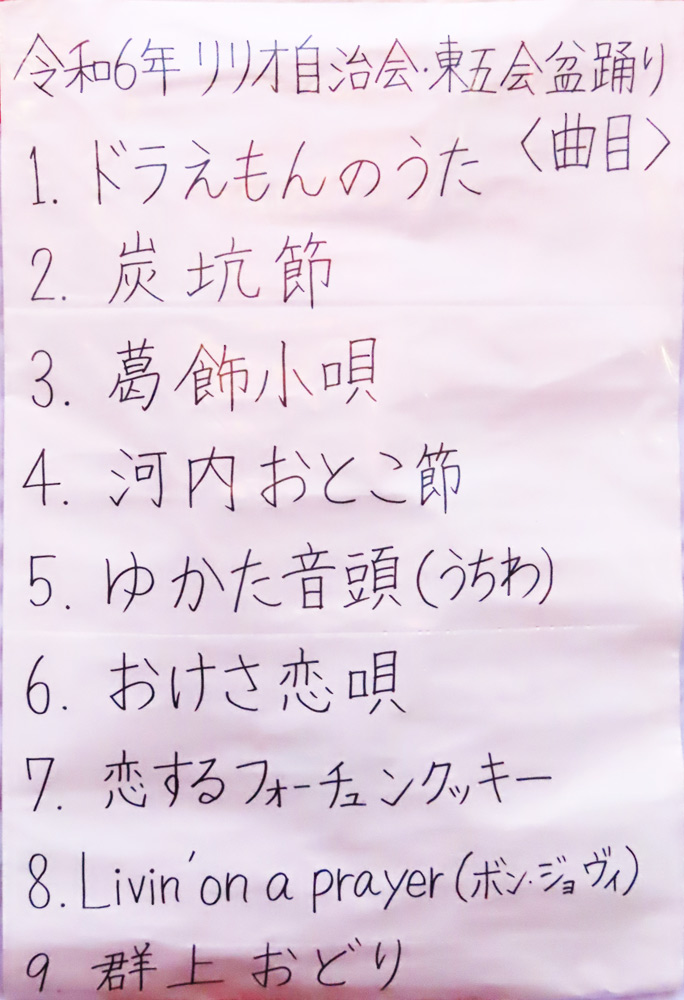 令和6年 リリオ自治会・東五会盆踊り
〈曲目〉
1. ドラえもんのうた
2. 炭坑節
3. 葛飾小唄
4. 河内おとこ節
5. ゆかた音頭(うちわ)
6. おけさ恋唄
7. 恋するフォーチュンクッキー
8. Livin'on a prayer(ボン・ジョヴィ)
9 群上おどり